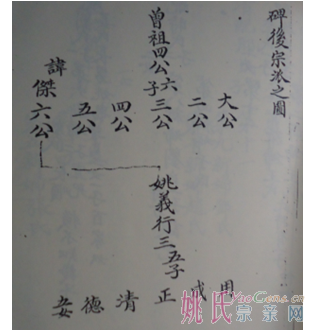 碑後宗派之圖
曾祖四公六子
大公
二公
三公
四公
五公
諱傑六公
姚義行三五子
用
成
正
清
德
安
姚氏宗亲网
YaoGens.cn